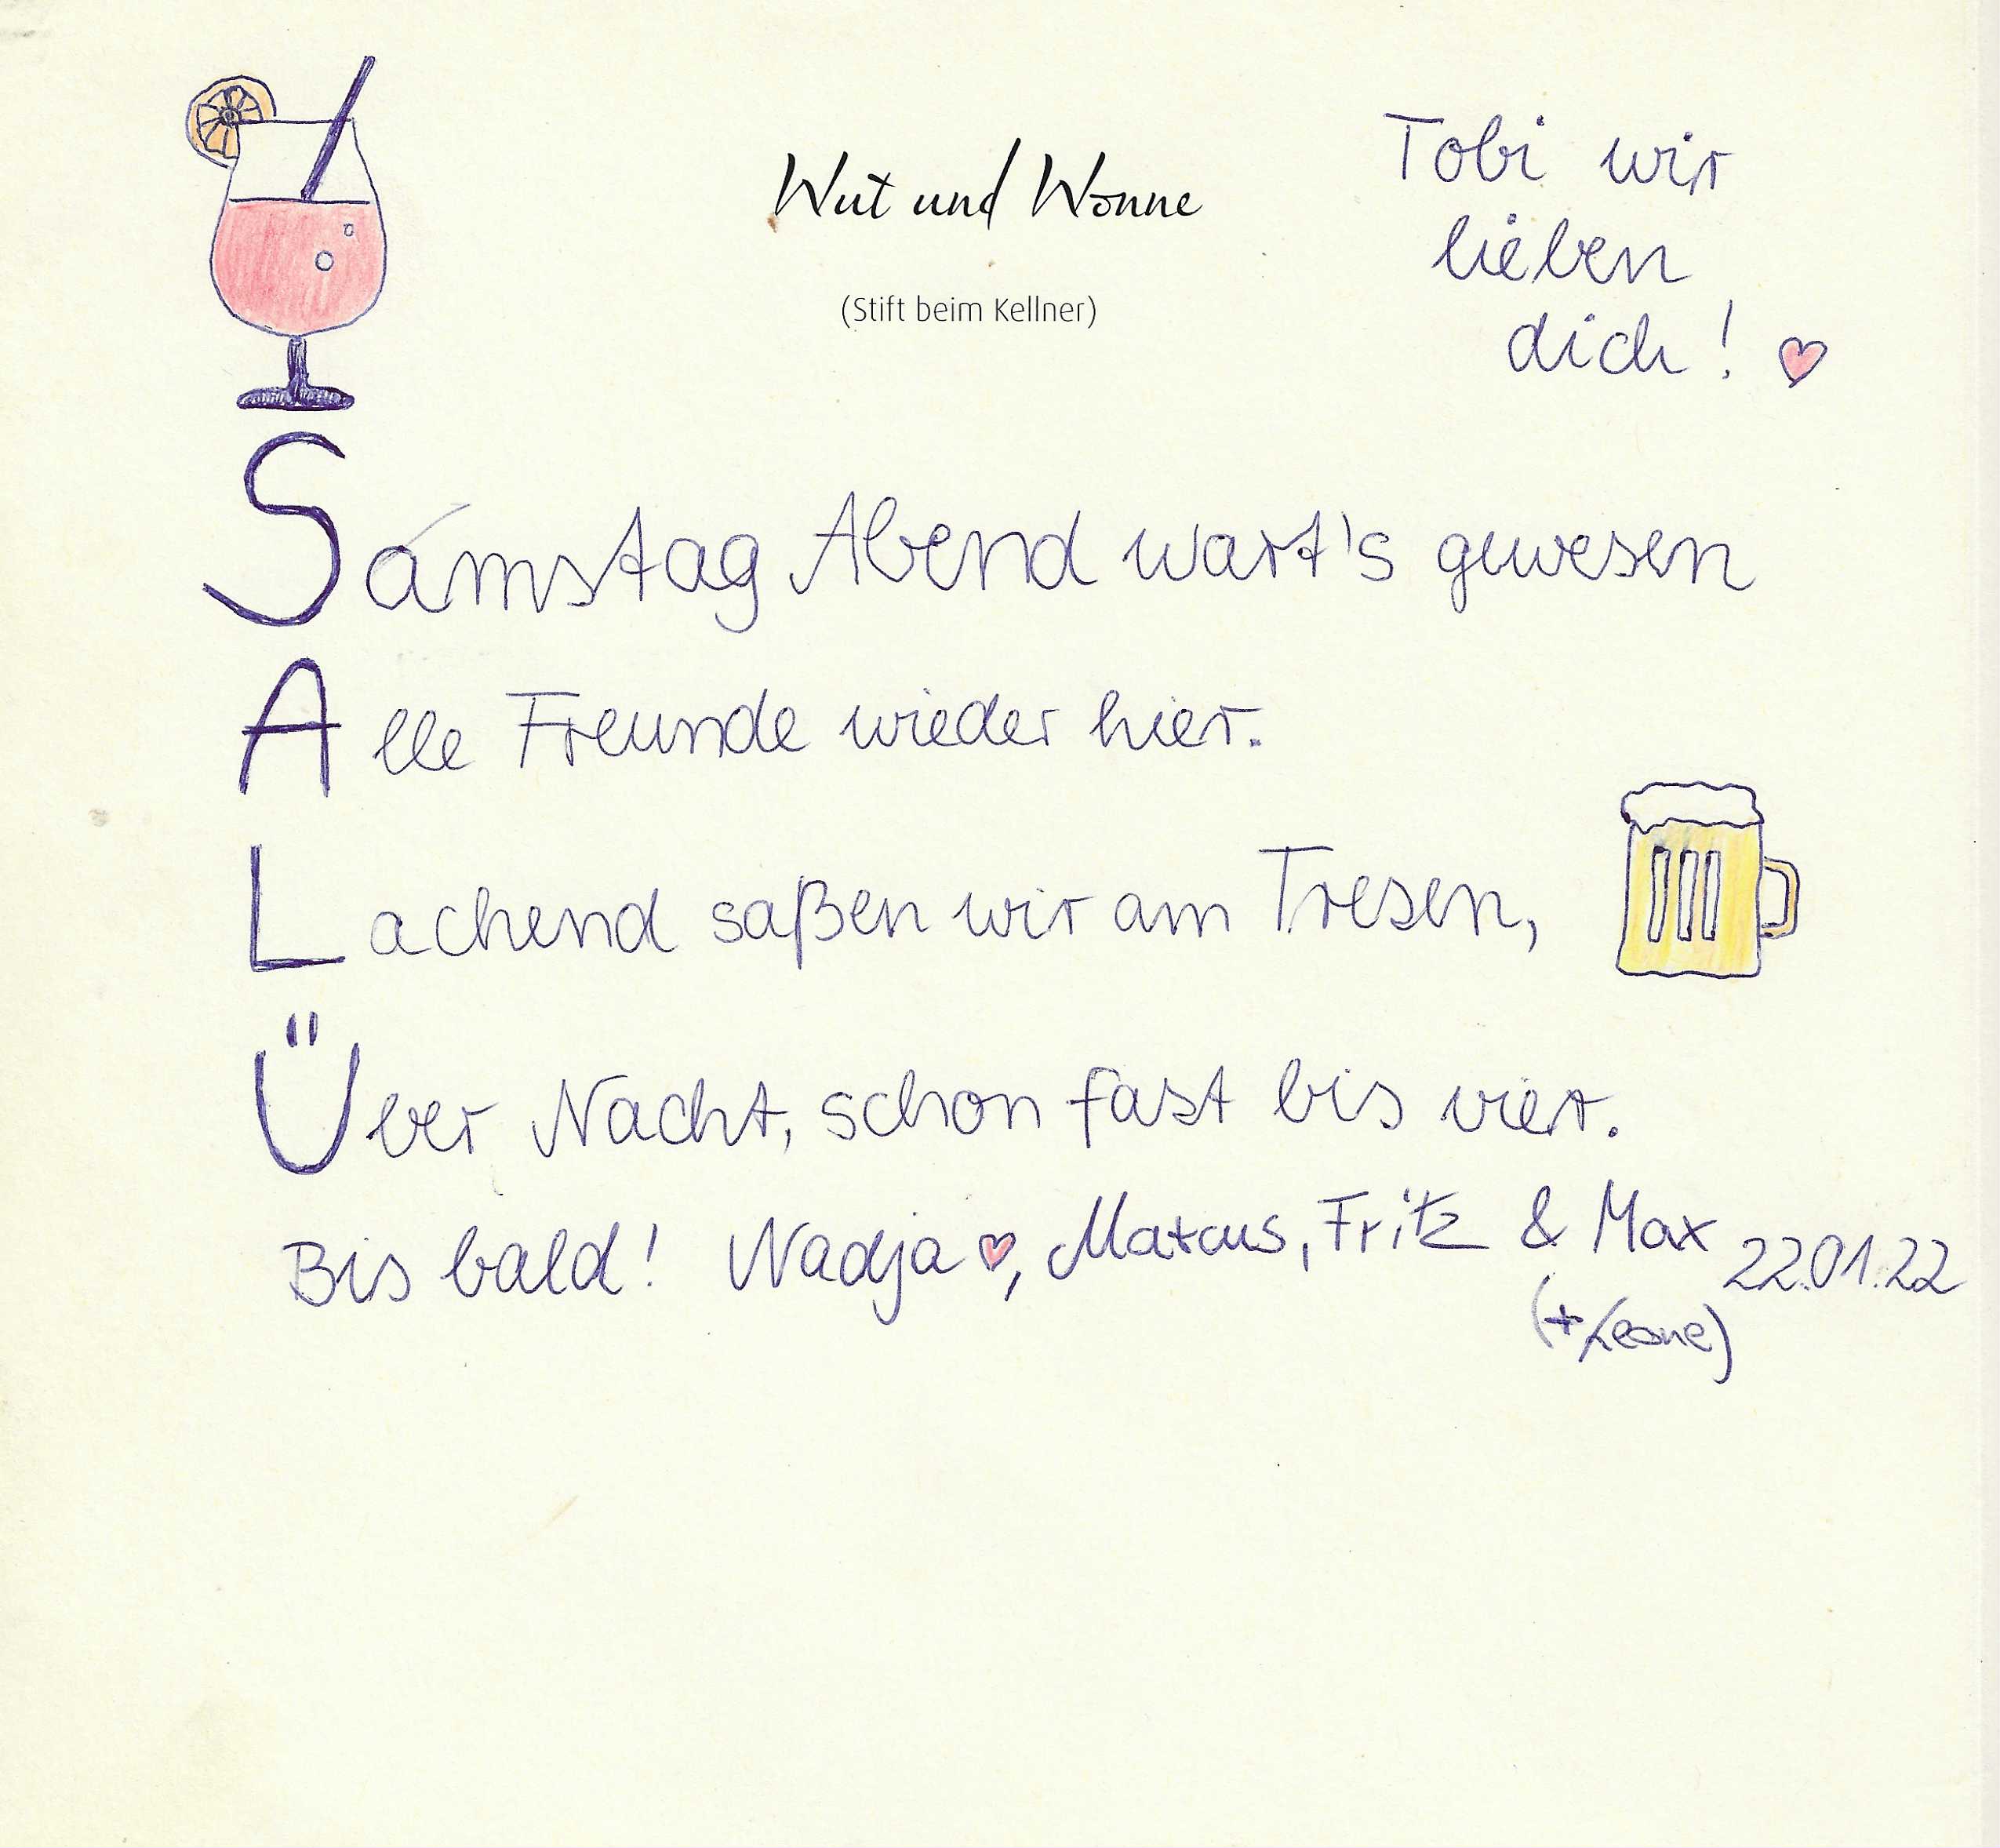 Wut und Wonne
(Stift beim Kellner)
Tobi wir
lieben
dich! ♥
Samstag Abend wart's gewesen
Alle Freunde wieder hier.
Lachend saßen wir am Tresen,
Über Nacht, schon fast bis vier.
Bis bald! Nadja ♥, Marcus, Fritz & Max 22.01.22
(+Leone)